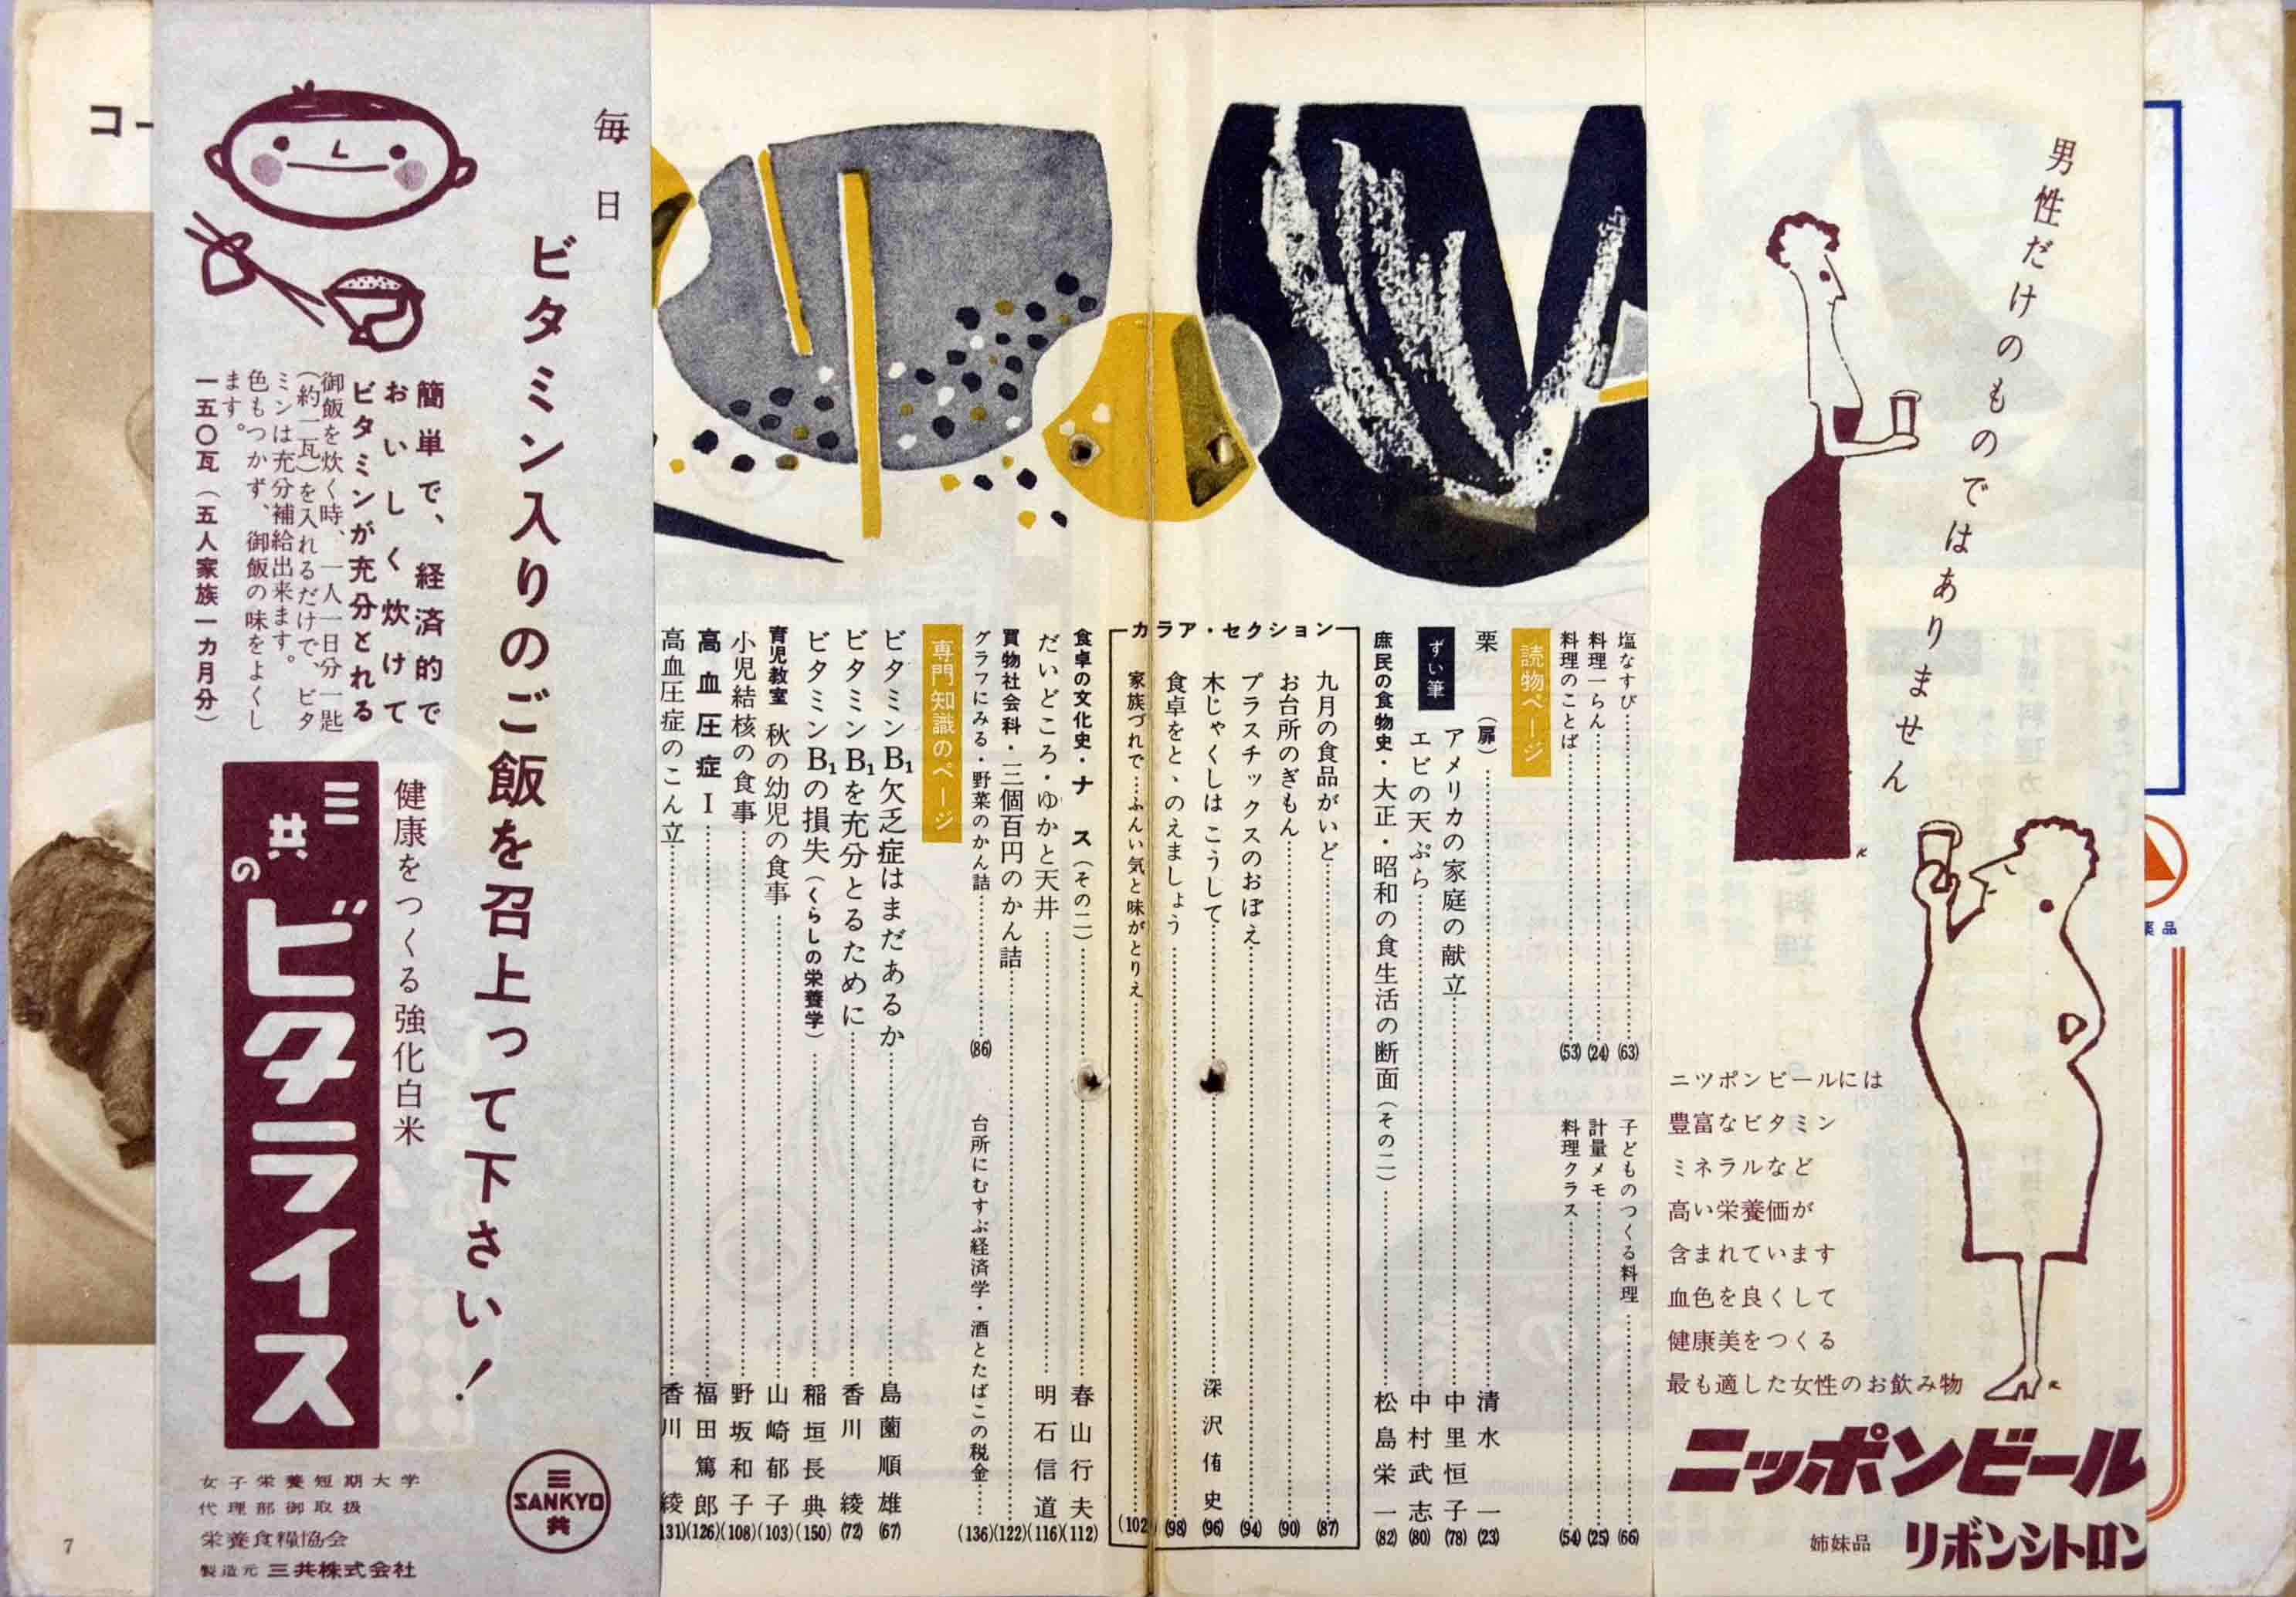 男性だけのものではありません
ニツポンビールには
豊富なビタミン
ミネラルなど
高い栄養価が
含まれています
血色を良くして
健康美をつくる
最も適した女性のお飲み物
ニッポンビール
姉妹品 リボンシトロン
薬品
塩なすび……(63)
子どものつくる料理……(66)
料理一らん……(24)
計量メモ……(25)
料理のことば……(53)
料理クラス……(54)
読物ページ
栗(扉)……清水一(23)
ずい筆
アメリカの家庭の献立……中里恒子(78)
エビの天ぷら……中村武志(80)
庶民の食物史・大正・昭和の食生活の断面(その二)……松島栄一(82)
カラア・セクション
九月の食品がいど……(87)
お台所のぎもん……(90)
プラスチックスのおぼえ……(94)
木じゃくしはこうして……深沢侑史(96)
食卓をとゝのえましょう……(98)
家族づれで…ふんい気と味がとりえ……(102)
食卓の文化史・ナス(その二)……春山行夫(112)
だいどころ・ゆかと天井……明石信道(116)
買物社会科・三個百円のかん詰……(122)
グラフにみる・野菜のかん詰……(86)
台所にむすぶ経済学・酒とたばこの税金……(136)
専門知識のページ
ビタミンB₁欠乏症はまだあるか……島薗順雄(67)
ビタミンB₁を充分とるために……香川綾(72)
ビタミンB₁の損失(くらしの栄養学)……稲垣長典(150)
育児教室 秋の幼児の食事……山崎郁子(103)
小児結核の食事……野坂和子(108)
高血圧症 I……福田篤郎(126)
高血圧症のこん立……香川綾(131)
毎日
ビタミン入りのご飯を召上って下さい!
簡単で、経済的で
おいしく炊けて
ビタミンが充分とれる
御飯を炊く時、一人一日分一匙
(約一瓦)を入れるだけで、ビタ
ミンは充分補給出来ます。
色もつかず、御飯の味をよくし
ます。
一五〇瓦(五人家族一カ月分)
健康をつくる強化白米
三共の
ビタライス
三
SANKYO
共
女子栄養短期大学
代理部御取扱
栄養食糧協会
製造元 三共株式会社
コー
7